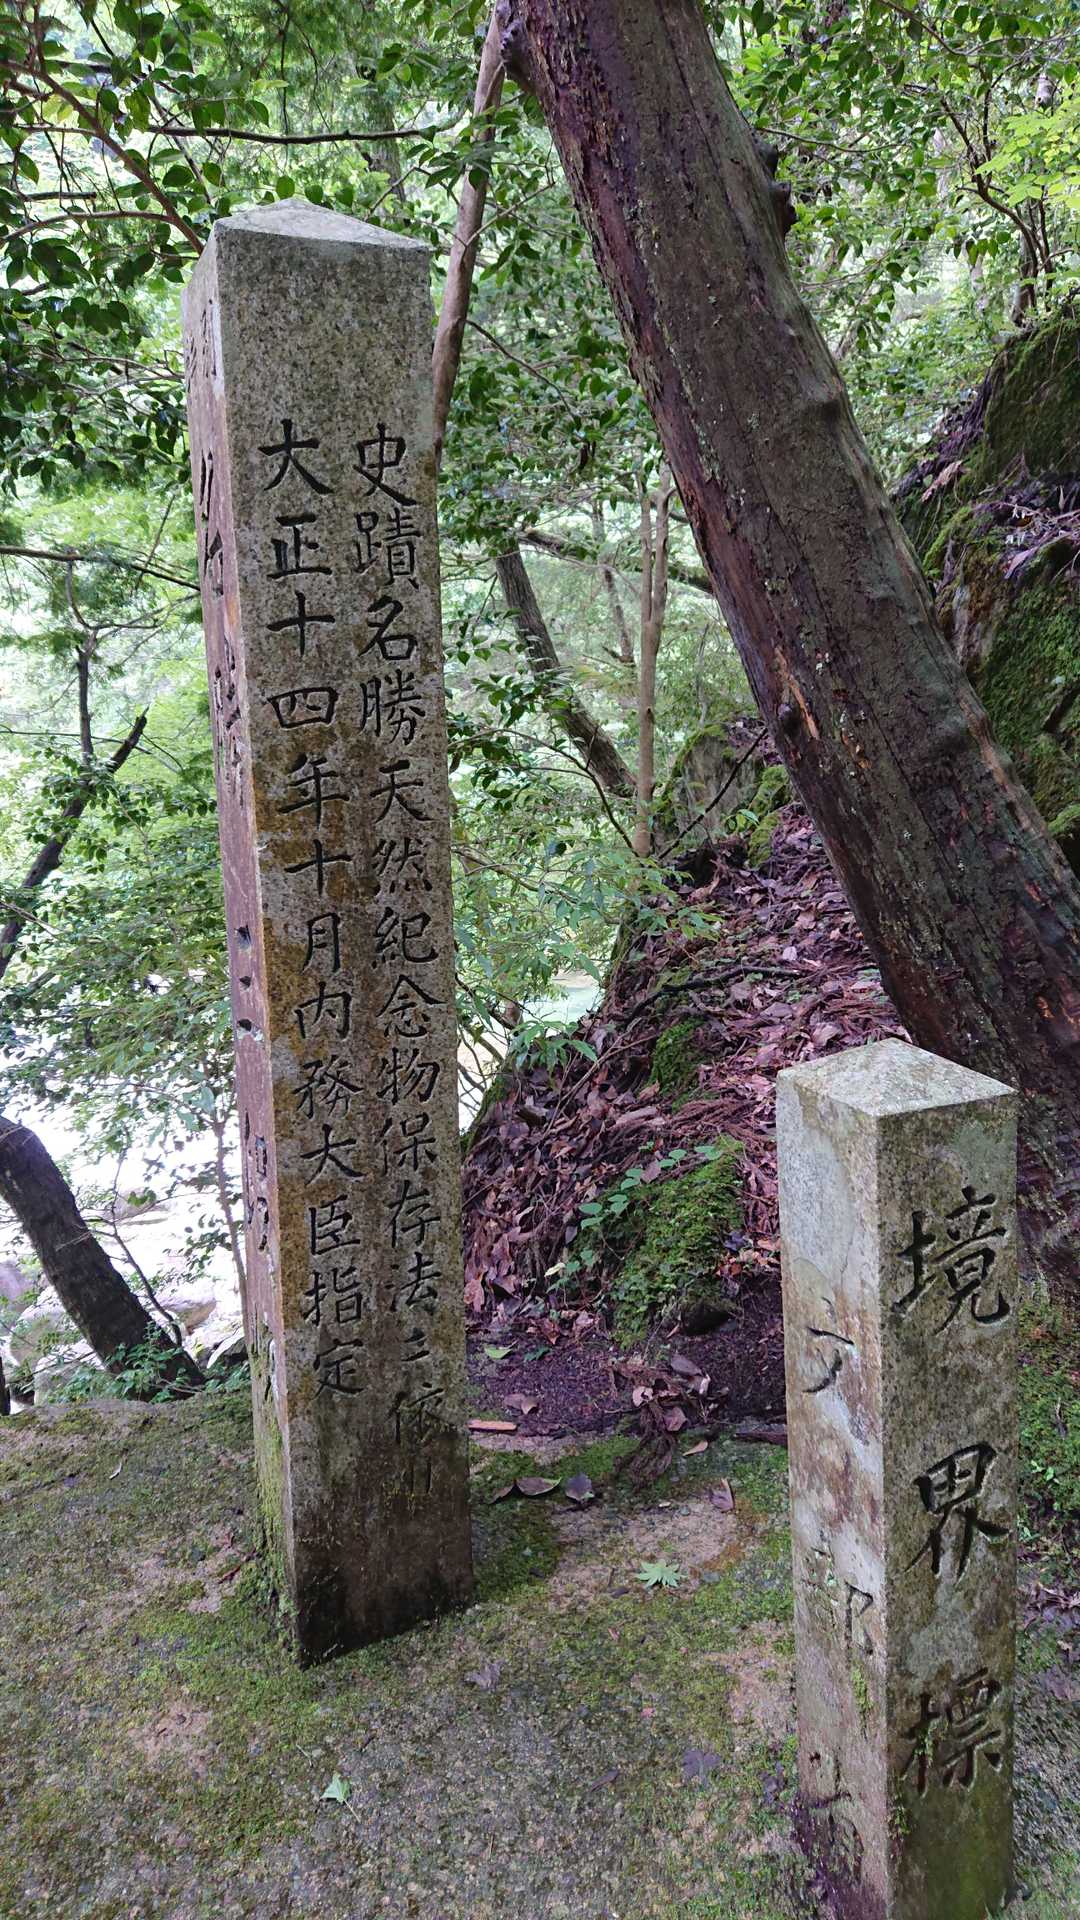 史蹟名勝天然紀念物保存法ニ依リ
大正十四年十月内務大臣指定
境界標
文部